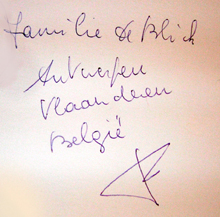 Familie De Blick
Antwerpen
Vlaanderen
België